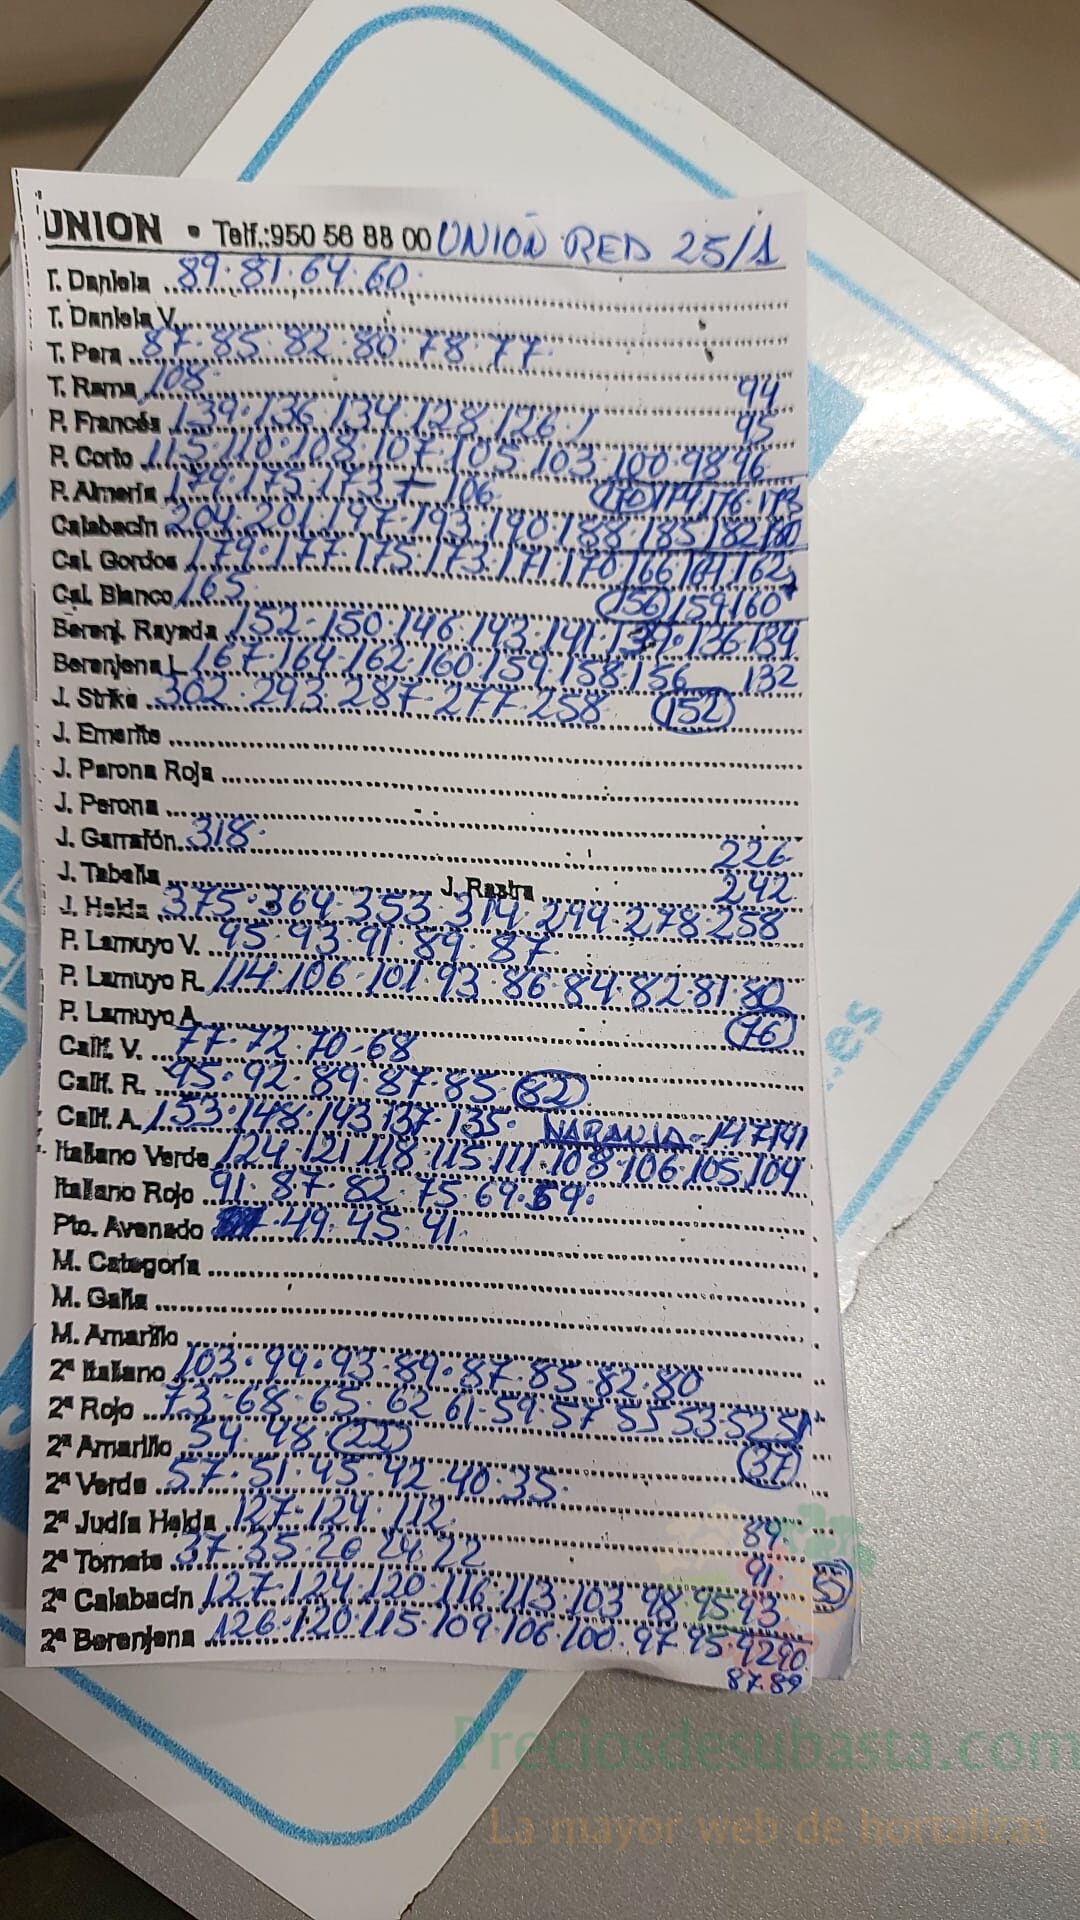 UNION • Telf.:950 56 88 00 UNIÓN RED 25/1
T. Daniela 89·81·64·60·
T. Daniela V.
T. Pera 87·85·82·80·78·77·
T. Rama 108· 94
P. Francés 139·136·134·128·126·1 95
P. Corto 115·110·108·107·105·103·100·98·96
P. Almería 179·175·173+106· 174·176·173
Calabacín 204·201·197·193·190·188·185·182·180
Cal. Gordos 179·177·175·173·171·170·166·164·162
Cal. Blanco 165· (156) 159·160
Berenj. Rayada 152·150·146·143·141·139·136·134
Berenjena L 167·164·162·160·159·158·156 132
J. Strike 302·293·287·277·258 (152)
J. Emerite
J. Perona Roja
J. Perona
J. Garrafón 318· 226·
J. Tabella J. Rastra 242
J. Helda 375·364·353·314·294·278·258
P. Lamuyo V. 95·93·91·89·87·
P. Lamuyo R. 114·106·101·93·86·84·82·81·80
P. Lamuyo A. (76)
Calif. V. 77·72·70·68
Calif. R. 95·92·89·87·85·(82)
Calif. A. 153·148·143·137·135· NARANJA-147·141
Italiano Verde 124·121·118·115·111·108·106·105·104
Italiano Rojo 91·87·82·75·69·59·
Pto. Avenado ·49·45·41·
M. Categoría
M. Galia
M. Amarillo
2ª Italiano 103·99·93·89·87·85·82·80
2ª Rojo 73·68·65·62·61·59·57·55·53·52·51
2ª Amarillo 54·48·(22) (37)
2ª Verde 57·51·45·42·40·35·
2ª Judía Helda 127·124·112· 89
2ª Tomate 37·35·26·24·22 91
2ª Calabacín 127·124·120·116·113·103·98·95·93
2ª Berenjena 126·120·115·109·106·100·97·95·92·90
87·89
Preciosdesubasta.com
La mayor web de hortalizas